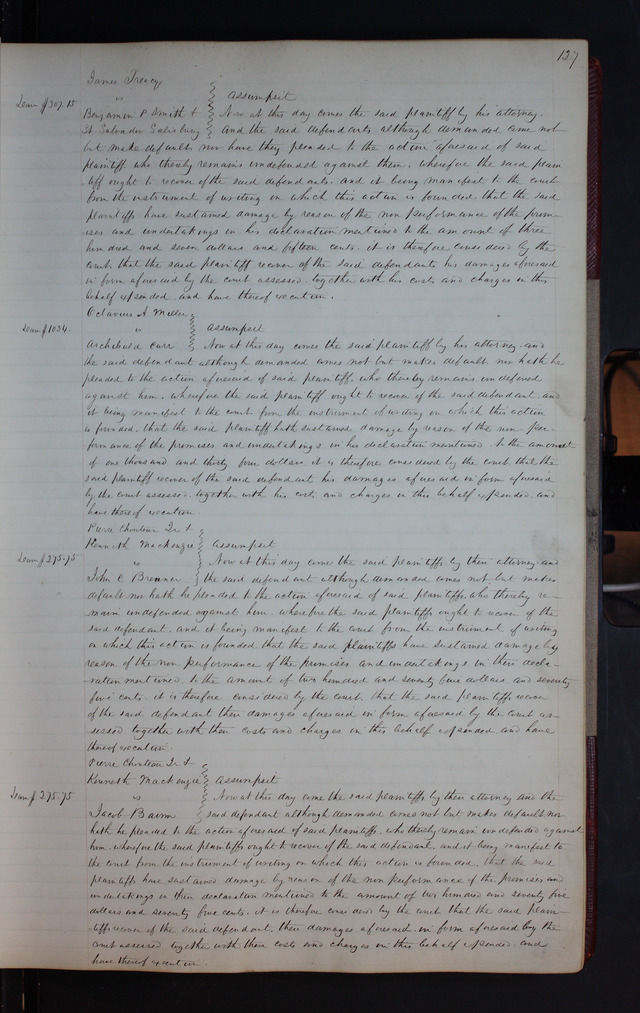 127
James Treacy
Dam $307.15
vs
assumpsit
Benjamin P Smith &
Now at this day comes the said plaintiff by his attorney.
St. Salvador Salisbury
and the said defendants although demanded came not
but make default. nor have they pleaded to the action aforesaid of said
plaintiff who thereby remains undefended against them. wherefore the said plain
tiff ought to recover of the said defendants. and it being manifest to the court
from the instrument of writing on which this action is founded that the said
plaintiffs have sustained damage by reason of the non performance of the prom-
ises and undertakings in his declaration mentioned to the amount of three
hundred and seven dollars and fifteen cents. it is therefore considered by the
court that the said plaintiff recover of the said defendants his damages aforesaid
in form aforesaid by the court assessed. together with his costs and charges in this
behalf expended. and have thereof execution.
Octavius A Miller
Dam $1034.
vs
assumpsit
Archibald Carr
Now at this day comes the said plaintiff by his attorney. and
the said defendant although demanded comes not but makes default. nor hath he
pleaded to the action aforesaid of said plaintiff. who thereby remains undefended
against him. wherefore the said plaintiff ought to recover of the said defendant. and
it being manifest to the court from the instrument of writing on which this action
is founded. that the said plaintiff hath sustained damage by reason of the non per-
formance of the promises and undertakings in his declaration mentioned to the amount
of one thousand and thirty four dollars it is therefore considered by the court that the
said plaintiff recover of the said defendant his damages aforesaid in form aforesaid
by the court assessed. together with his costs and charges in this behalf expended. and
have thereof execution.
Pierre Chouteau Jr &
Kenneth Mackenzie
assumpsit
Dam $275.75
vs
Now at this day come the said plaintiffs by their attorney and
John C Brenner
the said defendant although demanded comes not but makes
default. nor hath he pleaded to the action aforesaid of said plaintiffs. who thereby re-
main undefended against him. wherefore the said plaintiffs ought to recover of the
said defendant. and it being manifest to the court from the instrument of writing
on which this action is founded. that the said plaintiffs have sustained damage by
reason of the non performance of the promises and undertakings in their decla-
ration mentioned. to the amount of two hundred and seventy five dollars and seventy
five cents. it is therefore considered by the court that the said plaintiffs recover
of the said defendant their damages aforesaid in form aforesaid by the court as-
sessed together with their costs and charges in this behalf expended and have
thereof execution.
Pierre Chouteau Jr &
Kenneth Mackenzie
assumpsit
Dam $275.75
vs
Now at this day come the said plaintiffs by their attorney and the
Jacob Baum
said defendant although demanded comes not but makes default. nor
hath he pleaded to the action aforesaid of said plaintiffs. who thereby remain undefended against
him. wherefore the said plaintiffs ought to recover of the said defendant. and it being manifest to
the court from the instrument of writing on which this action is founded. that the said
plaintiffs have sustained damage by reason of the non performance of the promises and
undertakings in their declaration mentioned to the amount of two hundred and seventy five
dollars and seventy five cents. it is therefore considered by the court that the said plain-
tiffs recover of the said defendant. their damages aforesaid. in form aforesaid by the
court assessed together with their costs and charges in this behalf expended. and
have thereof execution.